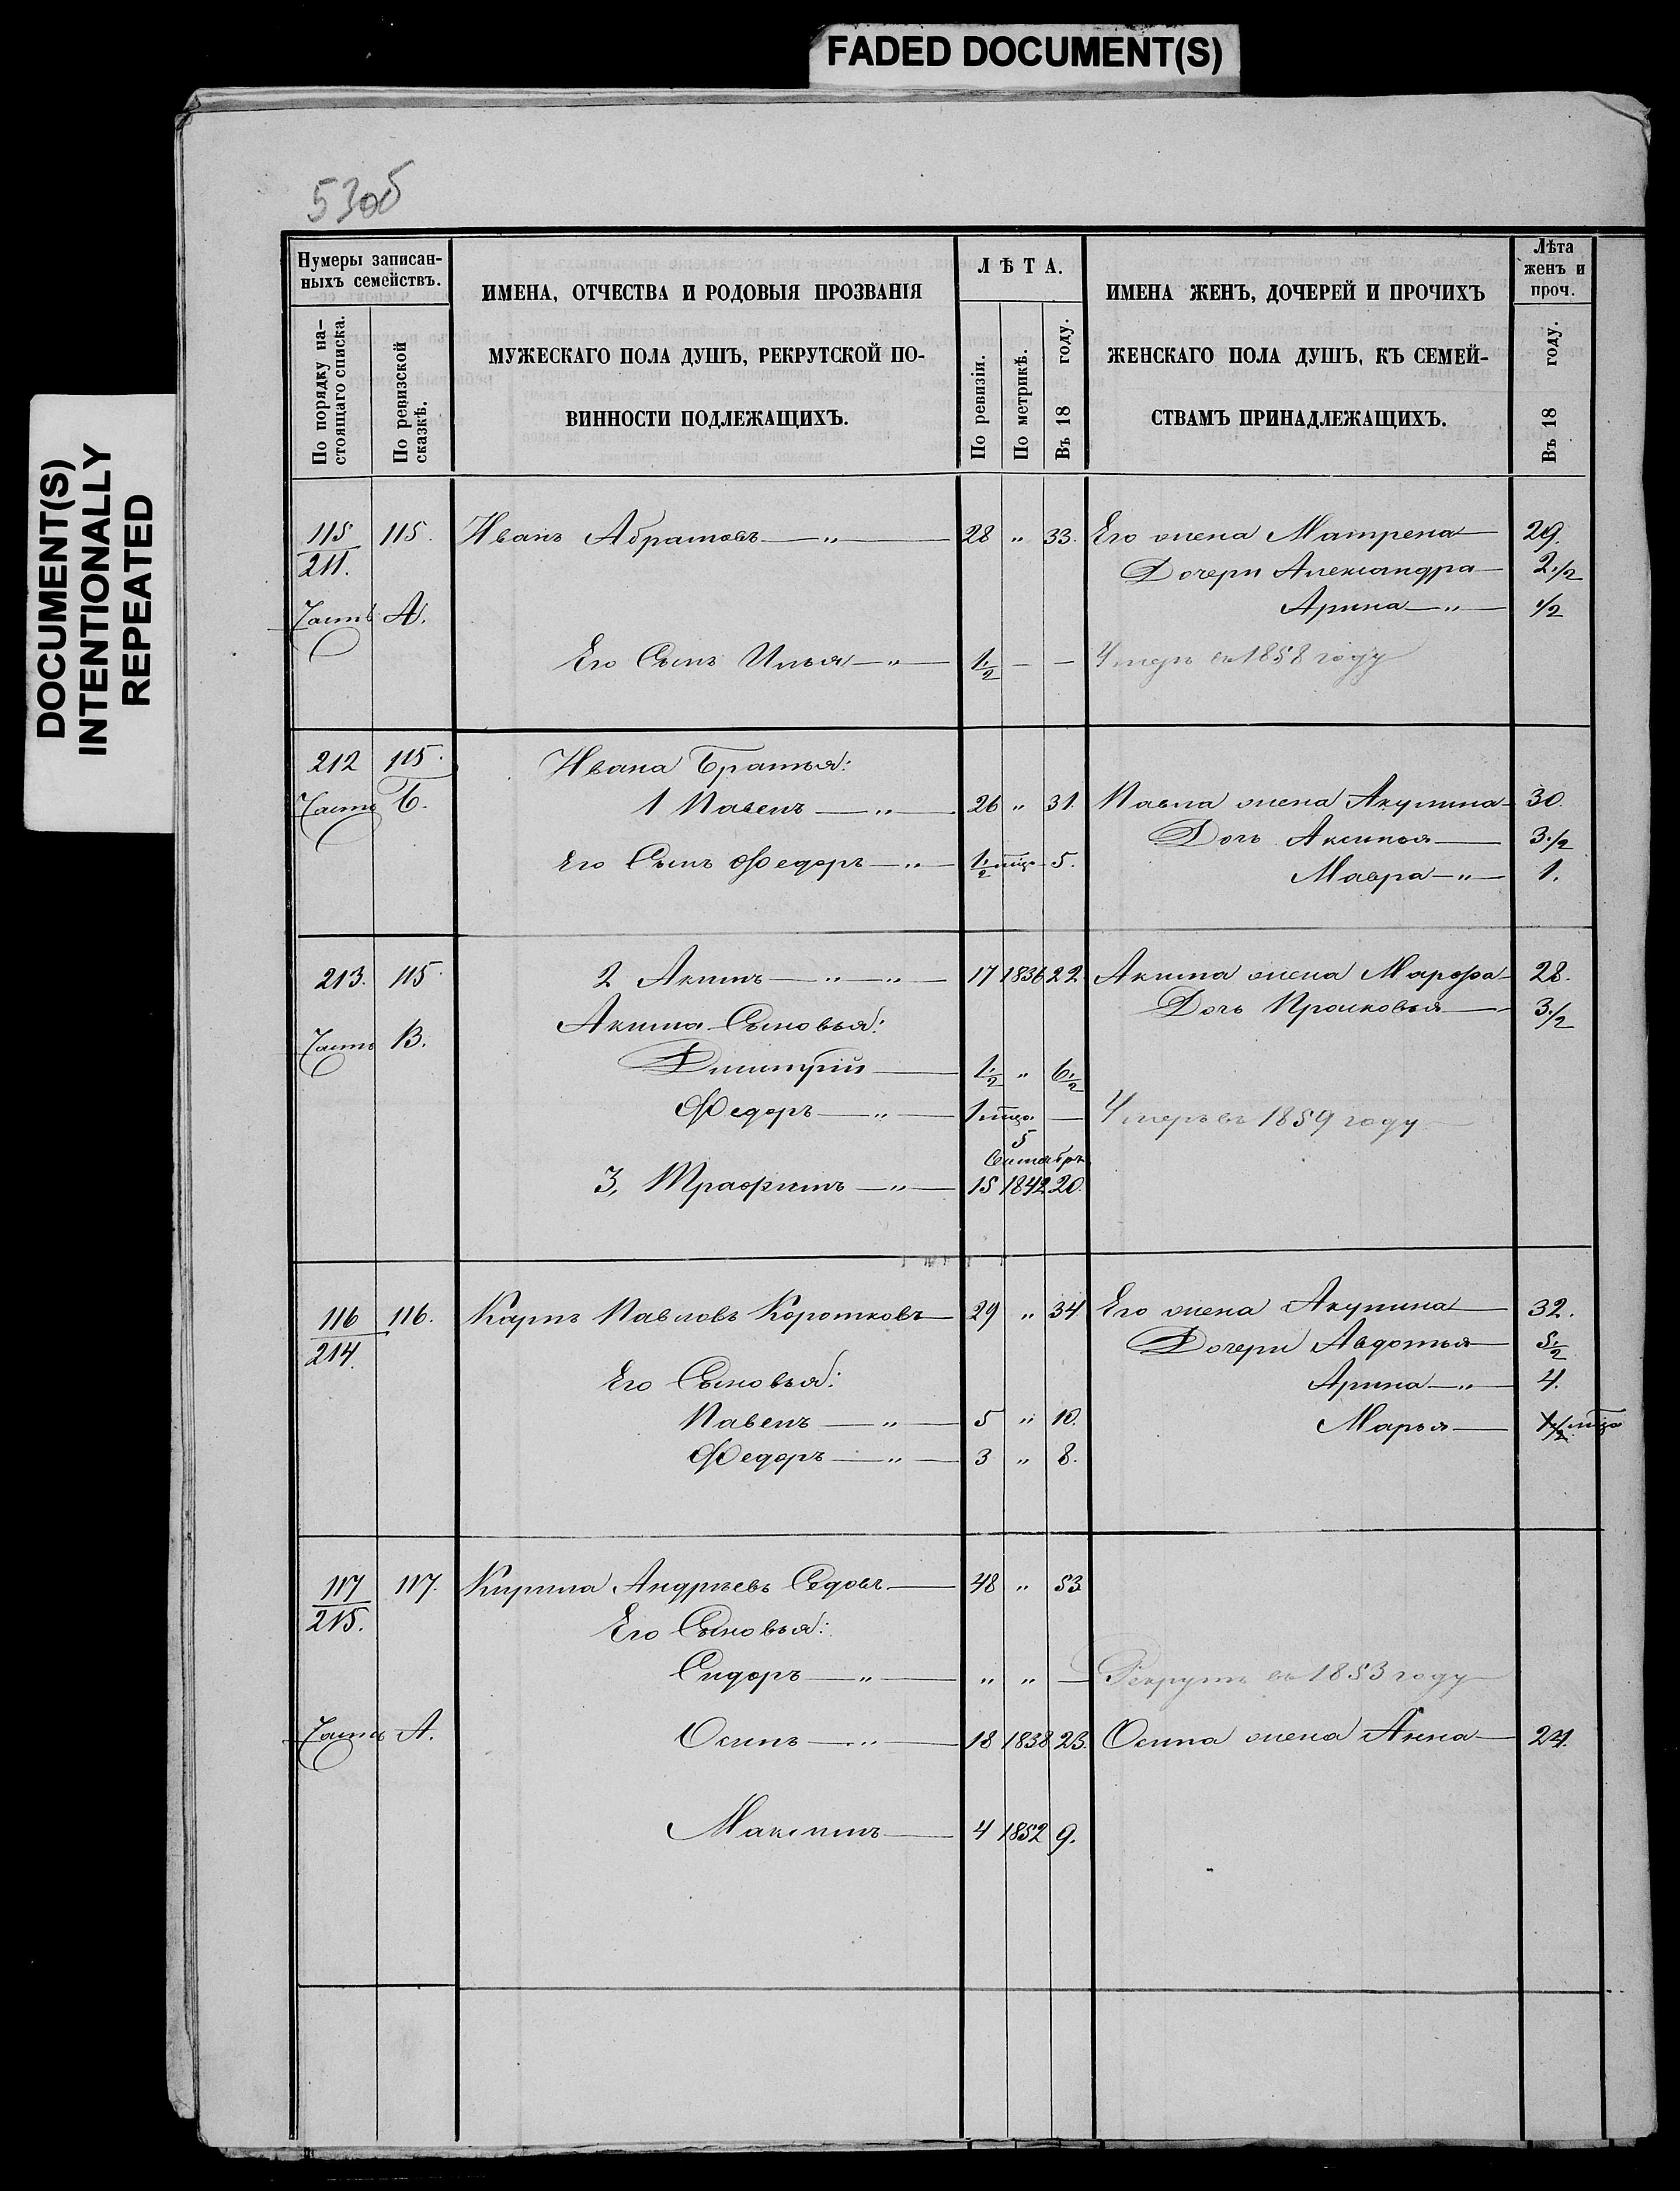 FADED DOCUMENT(S)
DOCUMENT(S)
INTENTIONALLY
REPEATED
53об
Нумеры записан-
ныхъ семействъ.
По порядку на-
стоящаго списка.
По ревизской
сказкѣ.
ИМЕНА, ОТЧЕСТВА И РОДОВЫЯ ПРОЗВАНІЯ
МУЖЕСКАГО ПОЛА ДУШЪ, РЕКРУТСКОЙ ПО-
ВИННОСТИ ПОДЛЕЖАЩИХЪ.
ЛѢТА.
По ревизіи.
По метрикѣ.
Въ 18 году.
ИМЕНА ЖЕНЪ, ДОЧЕРЕЙ И ПРОЧИХЪ
ЖЕНСКАГО ПОЛА ДУШЪ, КЪ СЕМЕЙ-
СТВАМЪ ПРИНАДЛЕЖАЩИХЪ.
Лѣта
женъ и
проч.
Въ 18 году.
115 115. Иванъ Абрамовъ — „ — 28 „ 33. Его жена Матрена — 29.
211. Дочери Александра — 2 1/2
Часть А. Арина — „ — 1/2
Его Сынъ Илья — „ — 1 1/2 — — Умеръ въ 1858 году
212 115. Ивана Братья:
Часть Б. 1 Павелъ — „ — 26 „ 31. Павла жена Акулина — 30.
Дочь Аксинья — 3 1/2
Его Сынъ Федоръ — „ — 1/2 мца 5.
Мавра — „ — 1.
213. 115. 2 Акимъ — „ — „ — 17 1836 22. Акима жена Марфа — 28.
Дочь Прасковья — 3 1/2
Часть В. Акима Сыновья:
Дмитрій — 1 1/2 „ 6 1/2
Федоръ — „ — 1 мца. — Умеръ въ 1859 году
5
Сентября
3, Трафимъ — „ — 15 1842 20.
116 116. Карпъ Павловъ Коротковъ — 29 „ 34 Его жена Акулина — 32.
214. Дочери Авдотья — 5 1/2
Его Сыновья: Арина — „ — 4.
Павелъ — „ — 5 „ 10. Марья — 1 1/2 мца
Федоръ — „ — 3 „ 8.
117 117. Кирила Андрѣевъ Седовъ — 48 „ 53
215. Его Сыновья:
Сидоръ — „ — „ „ — Рекрутъ въ 1853 году
Часть А. Осипъ — „ — 18 1838 23. Осипа жена Анна — 24.
Максимъ — 4 1852 9.